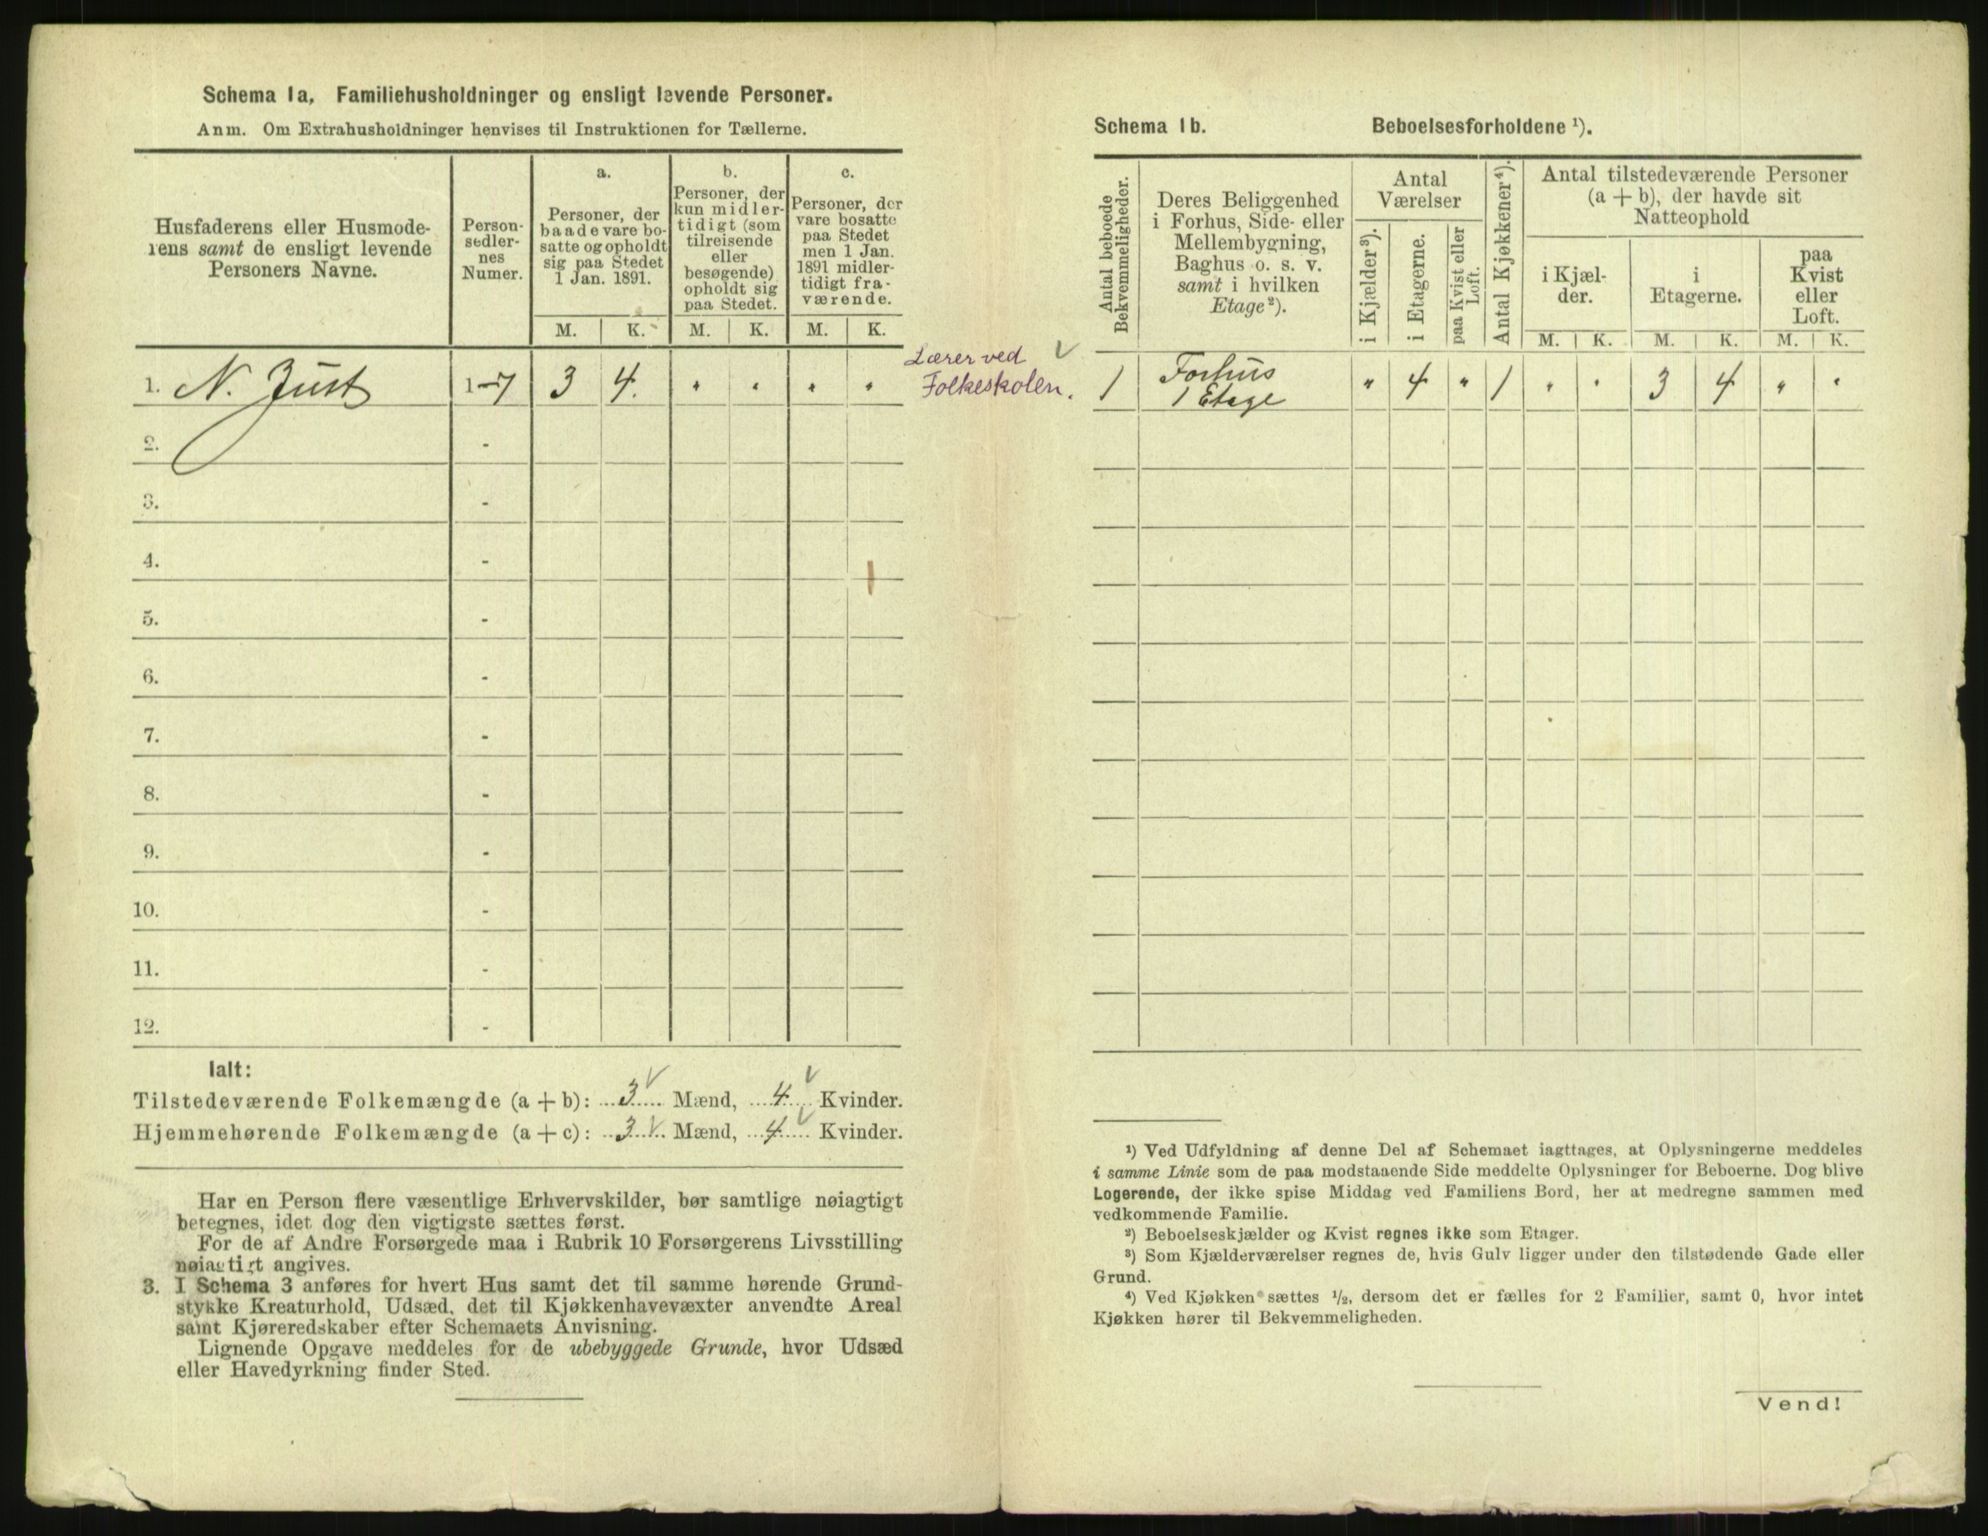 Schema 1a, Familiehusholdninger og ensligt levende Personer.
Anm. Om Extrahusholdninger henvises til Instruktionen for Tællerne.
Husfaderens eller Husmode-
rens samt de ensligt levende
Personers Navne.
Person-
sedler-
nes
Numer.
a.
Personer, der
baade vare bo-
satte og opholdt
sig paa Stedet
1 Jan. 1891.
b.
Personer, der
kun midler-
tidigt (som
tilreisende
eller
besøgende)
opholdt sig
paa Stedet.
c.
Personer, der
vare bosatte
paa Stedet
men 1 Jan.
1891 midler-
tidigt fra-
værende.
M. K. M. K. M. K.
1. N. Just 1-7 3 4. " " " "
Lærer ved
Folkeskolen.
2. -
3. -
4. -
5. -
6. -
7. -
8. -
9. -
10. -
11. -
12. -
Ialt:
Tilstedeværende Folkemængde (a + b): 3 Mænd, 4 Kvinder.
Hjemmehørende Folkemængde (a + c): 3 Mænd, 4 Kvinder.
Har en Person flere væsentlige Erhvervskilder, bør samtlige nøiagtigt
betegnes, idet dog den vigtigste sættes først.
For de af Andre Forsørgede maa i Rubrik 10 Forsørgerens Livsstilling
nøiagtigt angives.
3. I Schema 3 anføres for hvert Hus samt det til samme hørende Grund-
stykke Kreaturhold, Udsæd, det til Kjøkkenhavevæxter anvendte Areal
samt Kjøreredskaber efter Schemaets Anvisning.
Lignende Opgave meddeles for de ubebyggede Grunde, hvor Udsæd
eller Havedyrkning finder Sted.
Schema 1b. Beboelsesforholdene ¹).
Antal beboede
Bekvemmeligheder.
Deres Beliggenhed
i Forhus, Side- eller
Mellembygning,
Baghus o. s. v.
samt i hvilken
Etage²).
Antal
Værelser
i Kjælder³).
i Etagerne.
paa Kvist eller
Loft.
Antal Kjøkkener⁴).
Antal tilstedeværende Personer
(a + b), der havde sit
Natteophold
i Kjæl-
der.
i
Etagerne.
paa
Kvist
eller
Loft.
M. K. M. K. M. K.
1 Forhus
1 Etage " 4 " 1 " " 3 4 " "
¹) Ved Udfyldning af denne Del af Schemaet iagttages, at Oplysningerne meddeles
i samme Linie som de paa modstaaende Side meddelte Oplysninger for Beboerne. Dog blive
Logerende, der ikke spise Middag ved Familiens Bord, her at medregne sammen med
vedkommende Familie.
²) Beboelseskjælder og Kvist regnes ikke som Etager.
³) Som Kjælderværelser regnes de, hvis Gulv ligger under den tilstødende Gade eller
Grund.
⁴) Ved Kjøkken sættes 1/2, dersom det er fælles for 2 Familier, samt 0, hvor intet
Kjøkken hører til Bekvemmeligheden.
Vend!